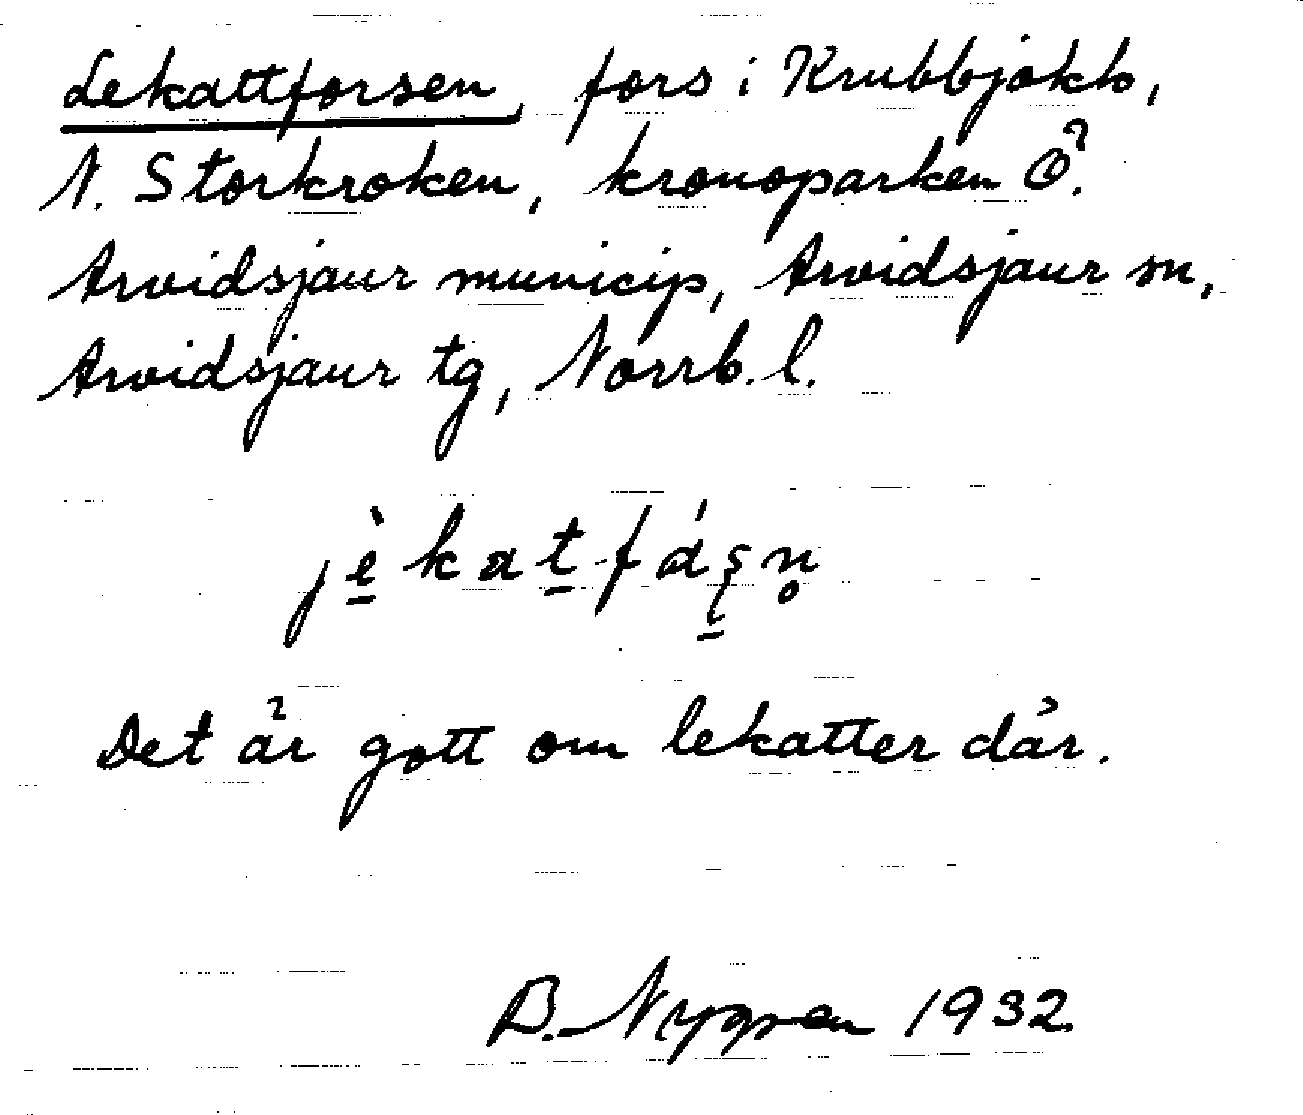 Lekattforsen, fors i Krubbjokk,
N. Storkroken, kronoparken Ö.
Arvidsjaur municip, Arvidsjaur sn,
Arvidsjaur tg, Norrb. l.
Det är gott om lekatter där.
B. Nygren 1932